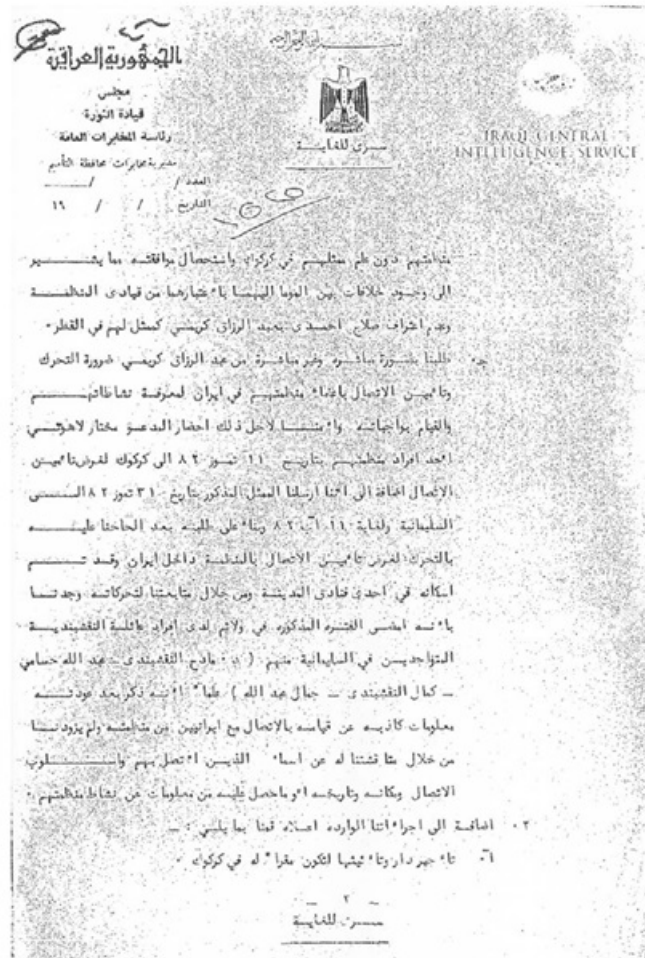 الجمهورية العراقية
مجلس
قيادة الثورة
رئاسة المخابرات العامة
مديرية مخابرات محافظة التأميم
العدد / /
التاريخ / / ١٩
سرى للغاية
IRAQI GENERAL
INTELLIGENCE SERVICE
منظمتهم دون علم ممثلهم في كركوك واستحصال موافقته مما يشير
الى وجود خلافات بين الموما اليهما باعتبارهما من قيادى المنظمة
وعدم اعتراف صلاح احمدى بعبد الرزاق كريمي كممثل لهم في القطر ٠
جـ٠ طلبنا بصورة مباشره وغير مباشرة من عبد الرزاق كريمي ضرورة التحرك
وتأمين الاتصال باعضاء منظمتهم في ايران لمعرفة نشاطاتهم
والقيام بواجباته لاجل ذلك احضار المدعو مختار لاهوتي
احد افراد منظمتهم بتاريخ ١١ تموز ٨٢ الى كركوك لغرض تأمين
الاتصال اضافة الى اننا ارسلنا الممثل المذكور بتاريخ ٣١ تموز ٨٢ الى
السليمانية ولغاية ١١ آب ٨٢ وبناء على طلبه بعد الحاحنا عليه
بالتحرك لغرض تأمين الاتصال بالمنظمة داخل ايران وقد تم
اسكانه في احدى فنادق المدينة ومن خلال متابعتنا لتحركاته وجدنا
بأنه امضى الفتره المذكوره في ولائم لدى افراد عائلة النقشبندية
المتواجدين في السليمانية منهم ( مادح النقشبندى ــ عبد الله حسامي
ــ كمال النقشبندى ــ جمال عبد الله ) علما" انه ذكر بعد عودته
معلومات كاذبه عن قيامه بالاتصال مع ايرانيين من منظمته ولم يزودنا
من خلال مناقشتنا له عن اسماء الذين اتصل بهم واسلوب
الاتصال ومكانه وتاريخه او ماحصل عليه من معلومات عن نشاط منظمتهم ٠
٢٠ اضافة الى اجراءاتنا الوارده اعلاه قمنا بما يلي : ــ
أ٠ تاجير دار وتأثيثها لتكون مقرا" له في كركوك ٠
ــ ٢ ــ
سرى للغاية